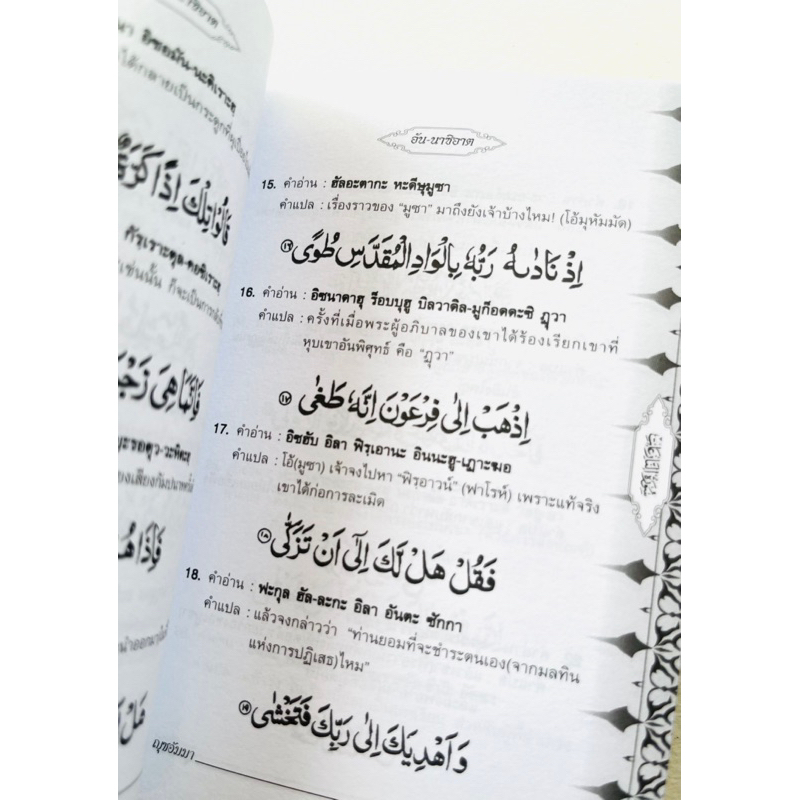 อัน-นาซิอาต
15. คำอ่าน : ฮัลอะตากะ หะดีษุมูซา
คำแปล : เรื่องราวของ "มูซา" มาถึงยังเจ้าบ้างไหม! (โอ้มุหัมมัด)
اِذْ نَادٰىهُ رَبُّهٗ بِالْوَادِ الْمُقَدَّسِ طُوًى ۝١٦
16. คำอ่าน : อิซนาดาฮุ ร็อบบุฮู บิลวาดิล-มูก็อดดะซิ ฏุวา
คำแปล : ครั้งที่เมื่อพระผู้อภิบาลของเขาได้ร้องเรียกเขาที่
หุบเขาอันพิศุทธ์ คือ "ฏุวา"
اِذْهَبْ اِلٰى فِرْعَوْنَ اِنَّهٗ طَغٰى ۝١٧
17. คำอ่าน : อิซฮับ อิลา ฟิรฺเอานะ อินนะฮู-เฏาะฆอ
คำแปล : โอ้(มูซา) เจ้าจงไปหา "ฟิรฺอาวน์" (ฟาโรห์) เพราะแท้จริง
เขาได้ก่อการละเมิด
فَقُلْ هَلْ لَكَ اِلٰٓى اَنْ تَزَكّٰى ۝١٨
18. คำอ่าน : ฟะกุล ฮัล-ละกะ อิลา อันตะ ซักกา
คำแปล : แล้วจงกล่าวว่า "ท่านยอมที่จะชำระตนเอง(จากมลทิน
แห่งการปฏิเสธ)ไหม"
وَاَهْدِيَكَ اِلٰى رَبِّكَ فَتَخْشٰى ۝١٩
ญุซอัมมา
قَالُوْا تِلْكَ اِذًا كَرَّةٌ
فَاِنَّمَا هِيَ زَجْرَ
فَاِذَا هُمْ
هَلْ